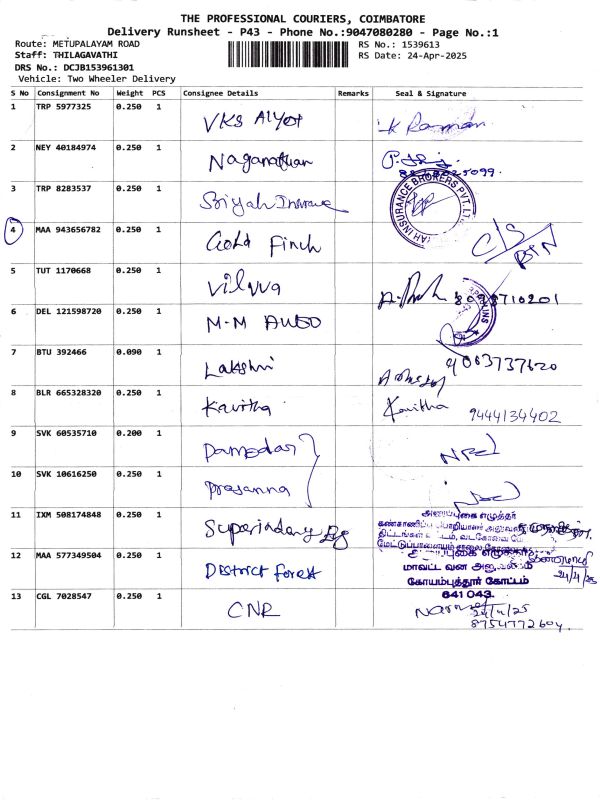 THE PROFESSIONAL COURIERS, COIMBATORE
Delivery Runsheet - P43 - Phone No.:9047080280 - Page No.:1
Route: METUPALAYAM ROAD RS No.: 1539613
Staff: THILAGAVATHI RS Date: 24-Apr-2025
DRS No.: DCJB153961301
Vehicle: Two Wheeler Delivery
S No Consignment No Weight PCS Consignee Details Remarks Seal & Signature
1 TRP 5977325 0.250 1 VKS K Raman
2 NEY 40184974 0.250 1 Naganathan
3 TRP 8283537 0.250 1 INSURANCE BROKERS PVT.LTD
4 MAA 943656782 0.250 1 Gold Finch C/S
5 TUT 1170668 0.250 1 Vilvva
6 DEL 121598720 0.250 1 M.M AUTO
7 BTU 392466 0.090 1 Lakshmi
8 BLR 665328320 0.250 1 Kavitha Kavitha 9444134402
9 SVK 60535710 0.200 1 Damodar
10 SVK 10616250 0.250 1 Prasanna
11 IXM 508174848 0.250 1 அனுப்புகை எழுத்தர்
12 MAA 577349504 0.250 1 District Forest
மாவட்ட வன அலுவலகம்
கோயம்புத்தூர் கோட்டம்
641 043.
13 CGL 7028547 0.250 1 CNR 24/4/25
8754772604